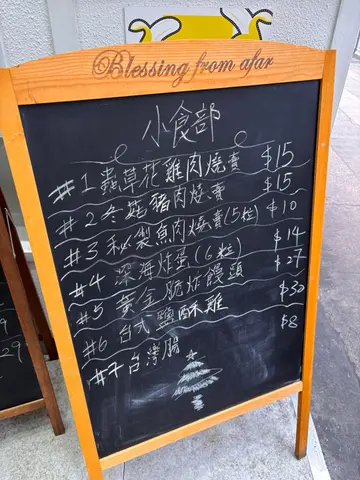 Blessing from afar
小食部
#1 蟲草花雞肉燒賣 $15
#2 冬菇豬肉燒賣 $15
#3 秘製魚肉燒賣(5粒) $10
#4 深海炸蛋(6粒) $14
#5 黃金脆炸饅頭 $27
#6 台式鹽酥雞 $30
#7 台灣腸 $8
9
29